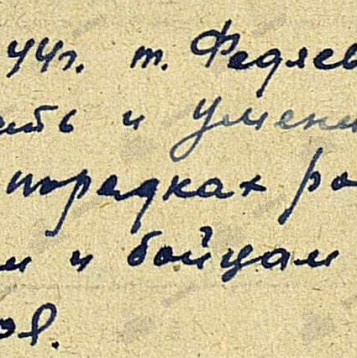 44г. т. Федяев
ить и умени
порядках ро
м и бойцам
ов.